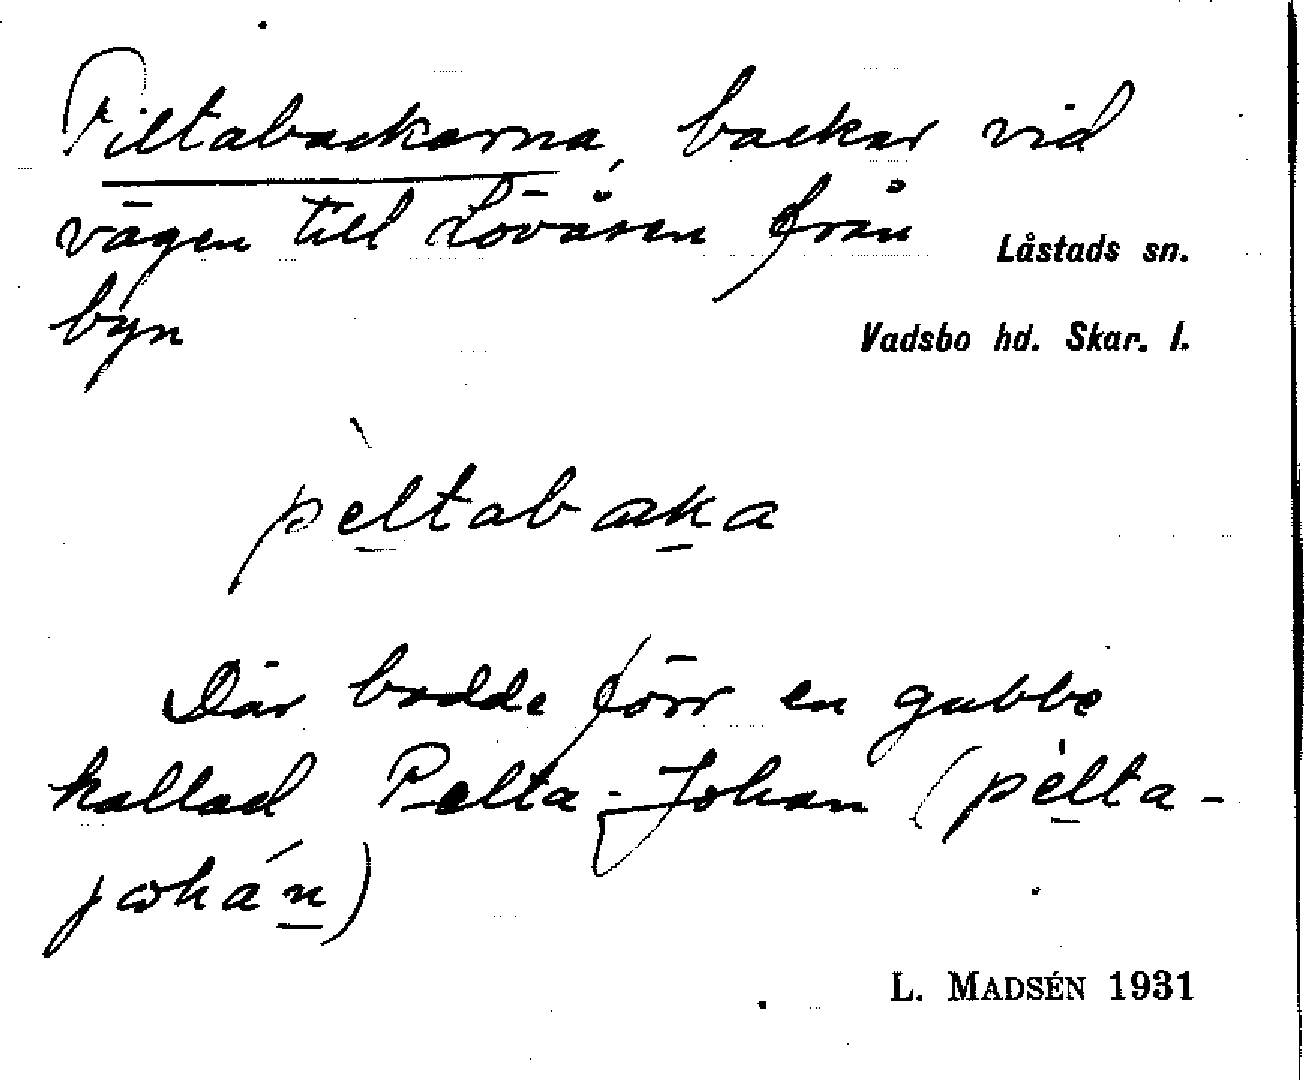 Piltabackarna, backar vid
vägen till Lövåsen från
Låstads sn.
byn
Vadsbo hd. Skar. l.
pèltabaka
Där bodde förr en gubbe
kallad Pelta-Johan (pèlta-
johán)
L. MADSÉN 1931